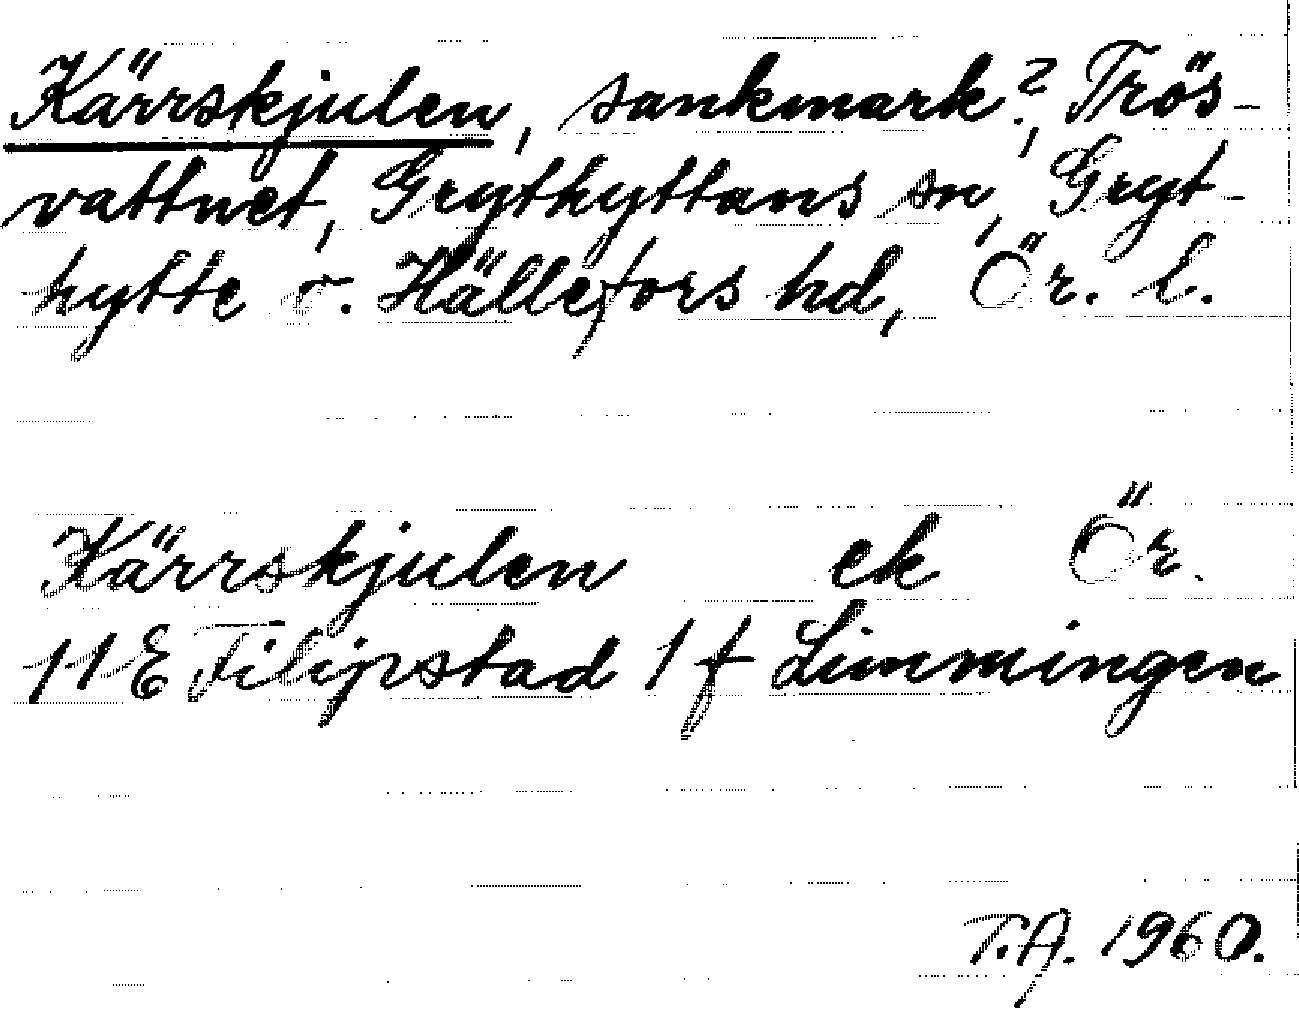 Kärrskjulen, sankmark?, Trös-
vattnet, Grythyttans sn, Gryt-
hytte o. Hällefors hd, Ör. l.
Kärrskjulen ek Ör.
11 E Filipstad 1 f Limmingen
T.A. 1960.